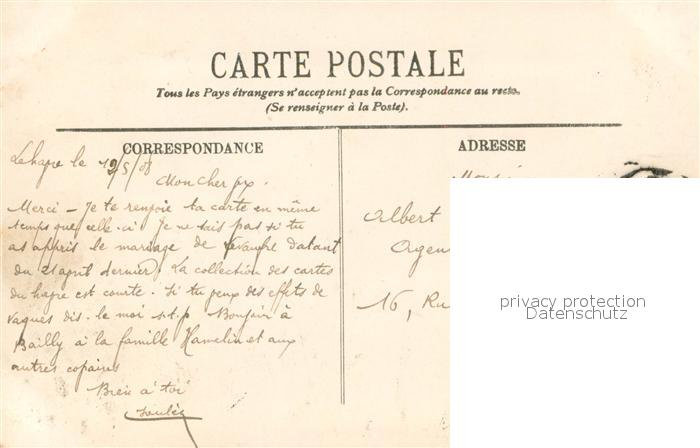 CARTE POSTALE
Tous les Pays étrangers n'acceptent pas la Correspondance au recto.
(Se renseigner à la Poste).
CORRESPONDANCE
Le havre le 19/5/08
Mon cher
Merci - Je te renvoie ta carte en même
temps que celle-ci Je ne sais pas si tu
as appris le mariage de datant
du 21 april dernier. La collection des cartes
du havre est courte. Si tu veux des effets de
vagues dis-le moi s.t.p Bonjour à
Bailly à la famille Hamelin et aux
autres copains
Bien à toi
ADRESSE
Albert
Agen
16, Ru
privacy protection
Datenschutz